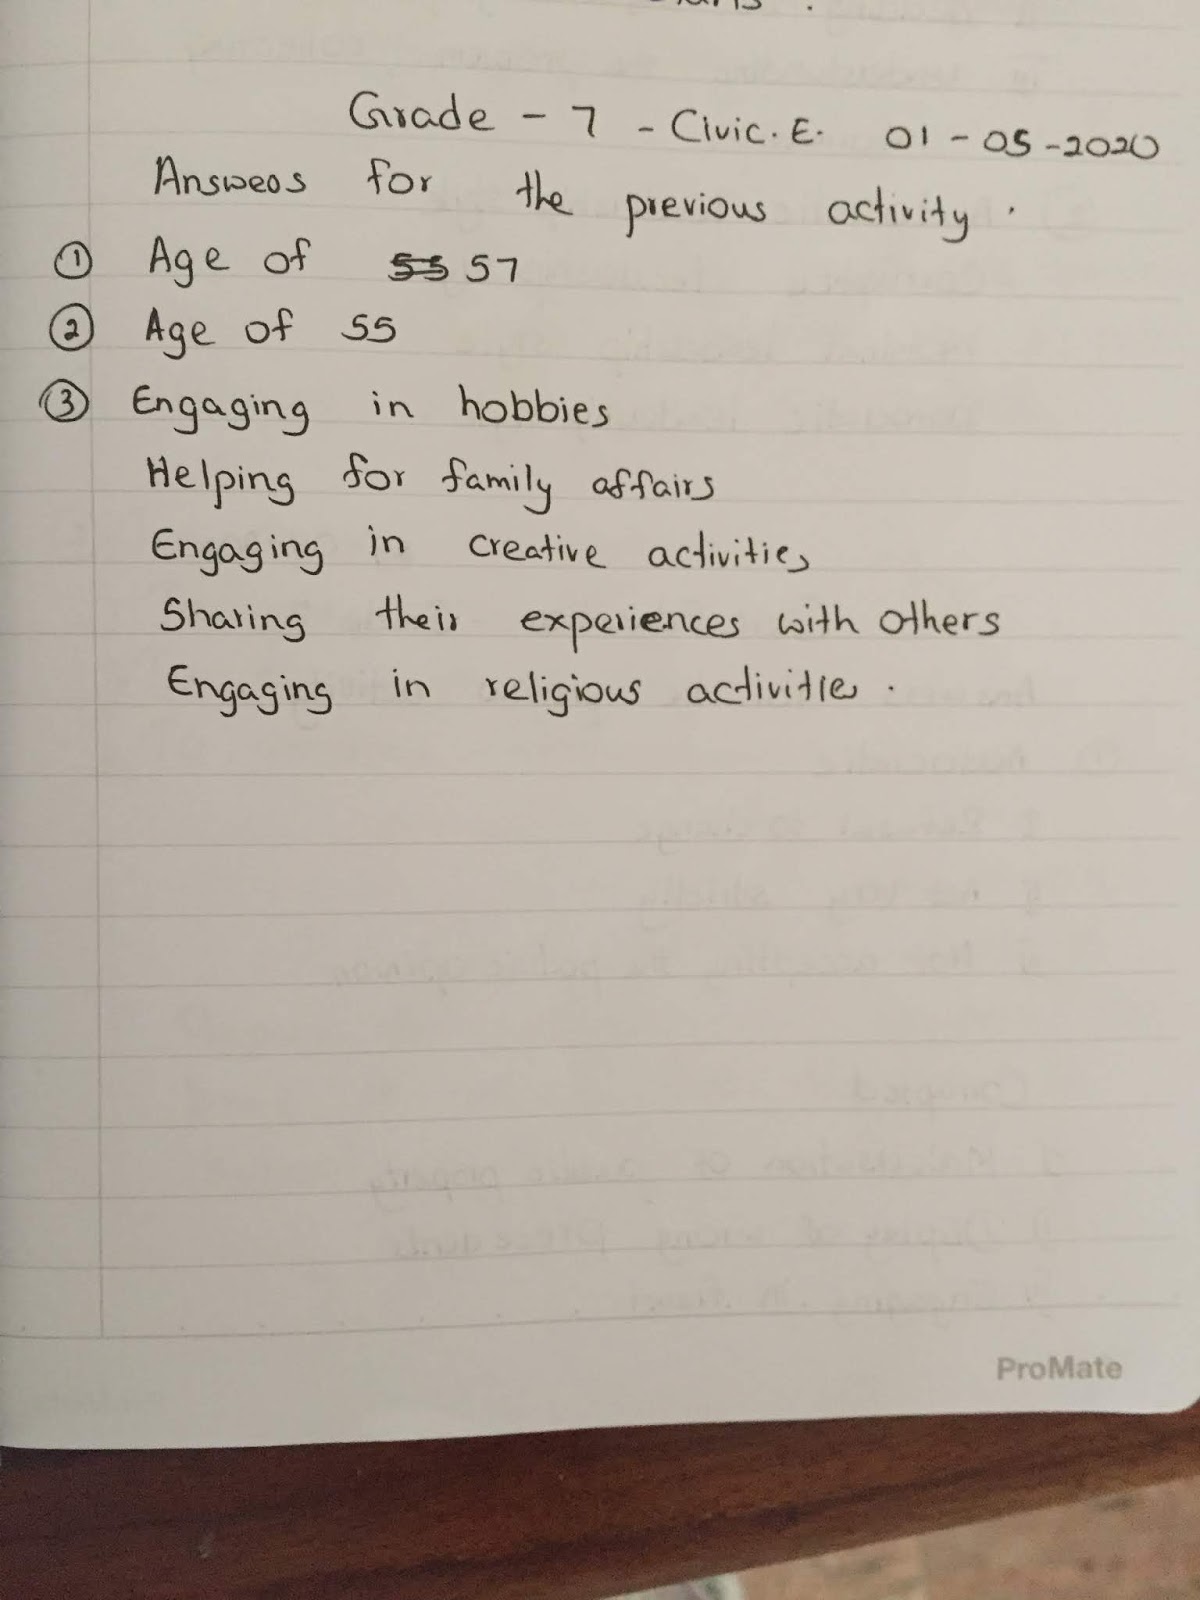 Grade - 7 - Civic. E. 01 - 05 -2020
Answeos for the previous activity .
① Age of 55 57
② Age of 55
③ Engaging in hobbies
Helping for family affairs
Engaging in creative activities
Sharing their experiences with others
Engaging in religious activities .
ProMate